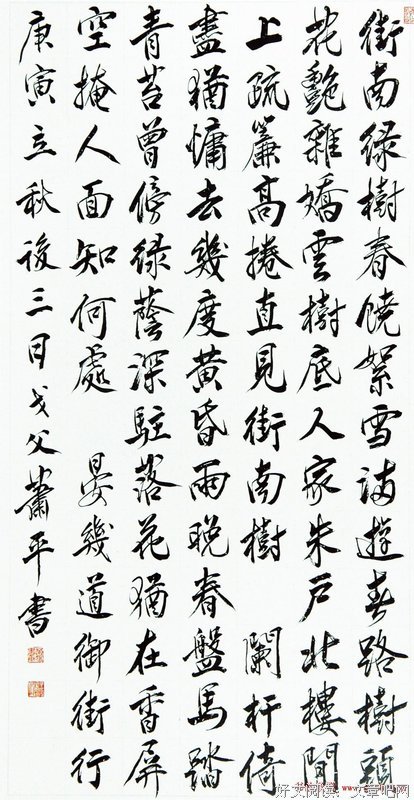 街南綠樹春饒絮雪滿遊春路樹頭
花艷雜嬌雲樹底人家朱戶北樓閒
上疏簾高捲直見街南樹 闌杆倚
盡猶慵去幾度黃昏雨晚春盤馬踏
青苔曾傍綠蔭深駐落花猶在香屏
空掩人面知何處 晏幾道御街行
庚寅立秋後三日戈父蕭平書
好文阅读：文章吧网